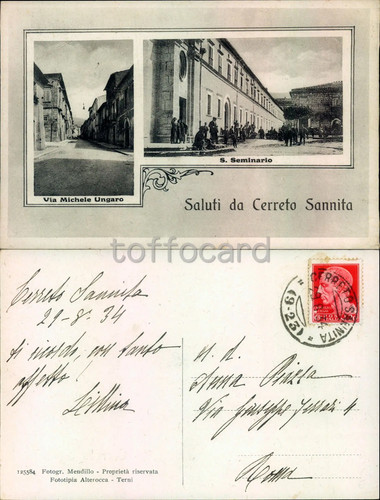 Via Michele Ungaro
S. Seminario
Saluti da Cerreto Sannita
toffocard
Cerreto Sannita
29-8-34
ti ricordo, con tanto
affetto!
N. D.
Anna
Via Giuseppe Ferrari 4
Roma
CERRETO SANNITA
125584 Fotogr. Mendillo - Proprietà riservata
Fototipia Alterocca - Terni